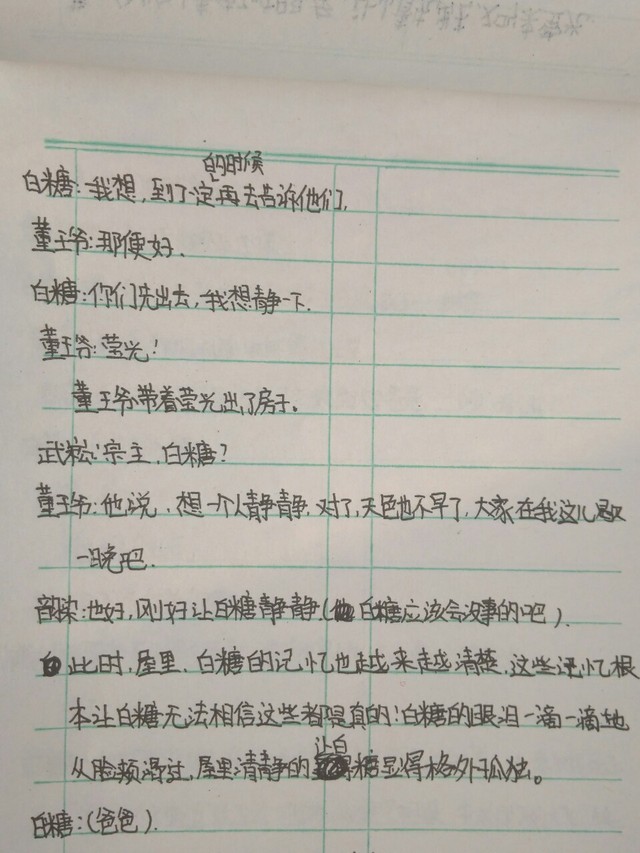 的时候
白糖:我想,到了一定再去告诉他们,
董王爷:那便好.
白糖:你们先出去,我想静一下.
董王爷:莹光!
董王爷带着莹光出了房子。
武崧:宗主,白糖?
董王爷:他说,想一个人静静,对了,天色也不早了,大家在我这儿歇
一晚吧.
韵染:也好,刚好让白糖静静.(白糖应该会没事的吧).
此时,屋里,白糖的记忆也越来越清楚,这些记忆根
本让白糖无法相信这些都是真的:白糖的眼泪一滴一滴地
让白
从脸颊滑过,屋里清静的糖显得格外孤独。
白糖:(爸爸).